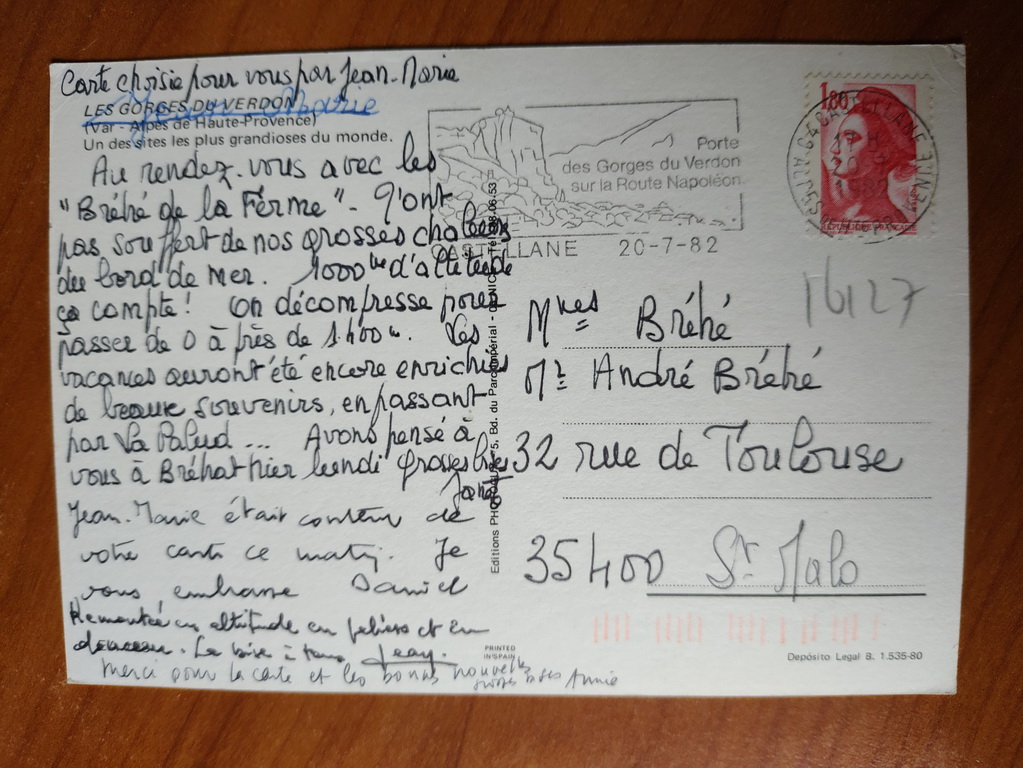 Carte choisie pour vous par Jean-Marie
LES GORGES DU VERDON
Jean Marie
(Var - Alpes de Haute-Provence)
Un des sites les plus grandioses du monde.
Au rendez-vous avec les
"Bréhé de la Ferme". N'ont
pas souffert de nos grosses chaleurs
du bord de mer. 1000m d'altitude
ça compte! On décompresse pour
passer de 0 à près de 1400m. Les
vacances auront été encore enrichies
de beaux souvenirs, en passant
par La Palud ... Avons pensé à
vous à Bréhat hier lundi grosses bises
Jean-Marie était content de
votre carte ce matin. Je
vous embrasse Daniel
Remontée en altitude en
douceur. La bise à tous Jean.
Merci pour la carte et les bonnes nouvelles
Annie
Porte
des Gorges du Verdon
sur la Route Napoléon
CASTELLANE 20-7-82
1,80
REPUBLIQUE FRANCAISE
16127
Mmes Bréhé
Mr André Bréhé
32 rue de Toulouse
35400 St Malo
PRINTED
IN SPAIN
Depósito Legal B. 1.535-80